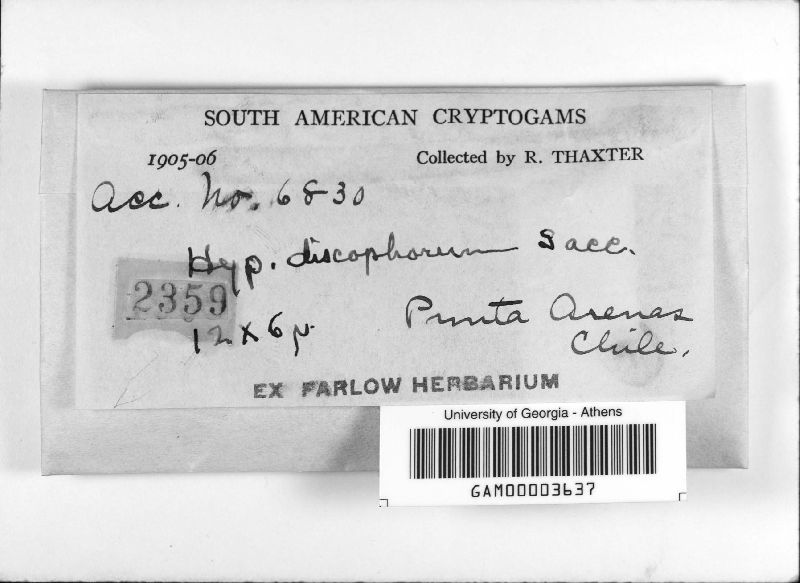 SOUTH AMERICAN CRYPTOGAMS
1905-06 Collected by R. THAXTER
Acc. No. 6830
Hyp. discophorum Sacc.
2359
12 x 6 µ. Punta Arenas
Chile.
EX FARLOW HERBARIUM
University of Georgia - Athens
GAM00003637